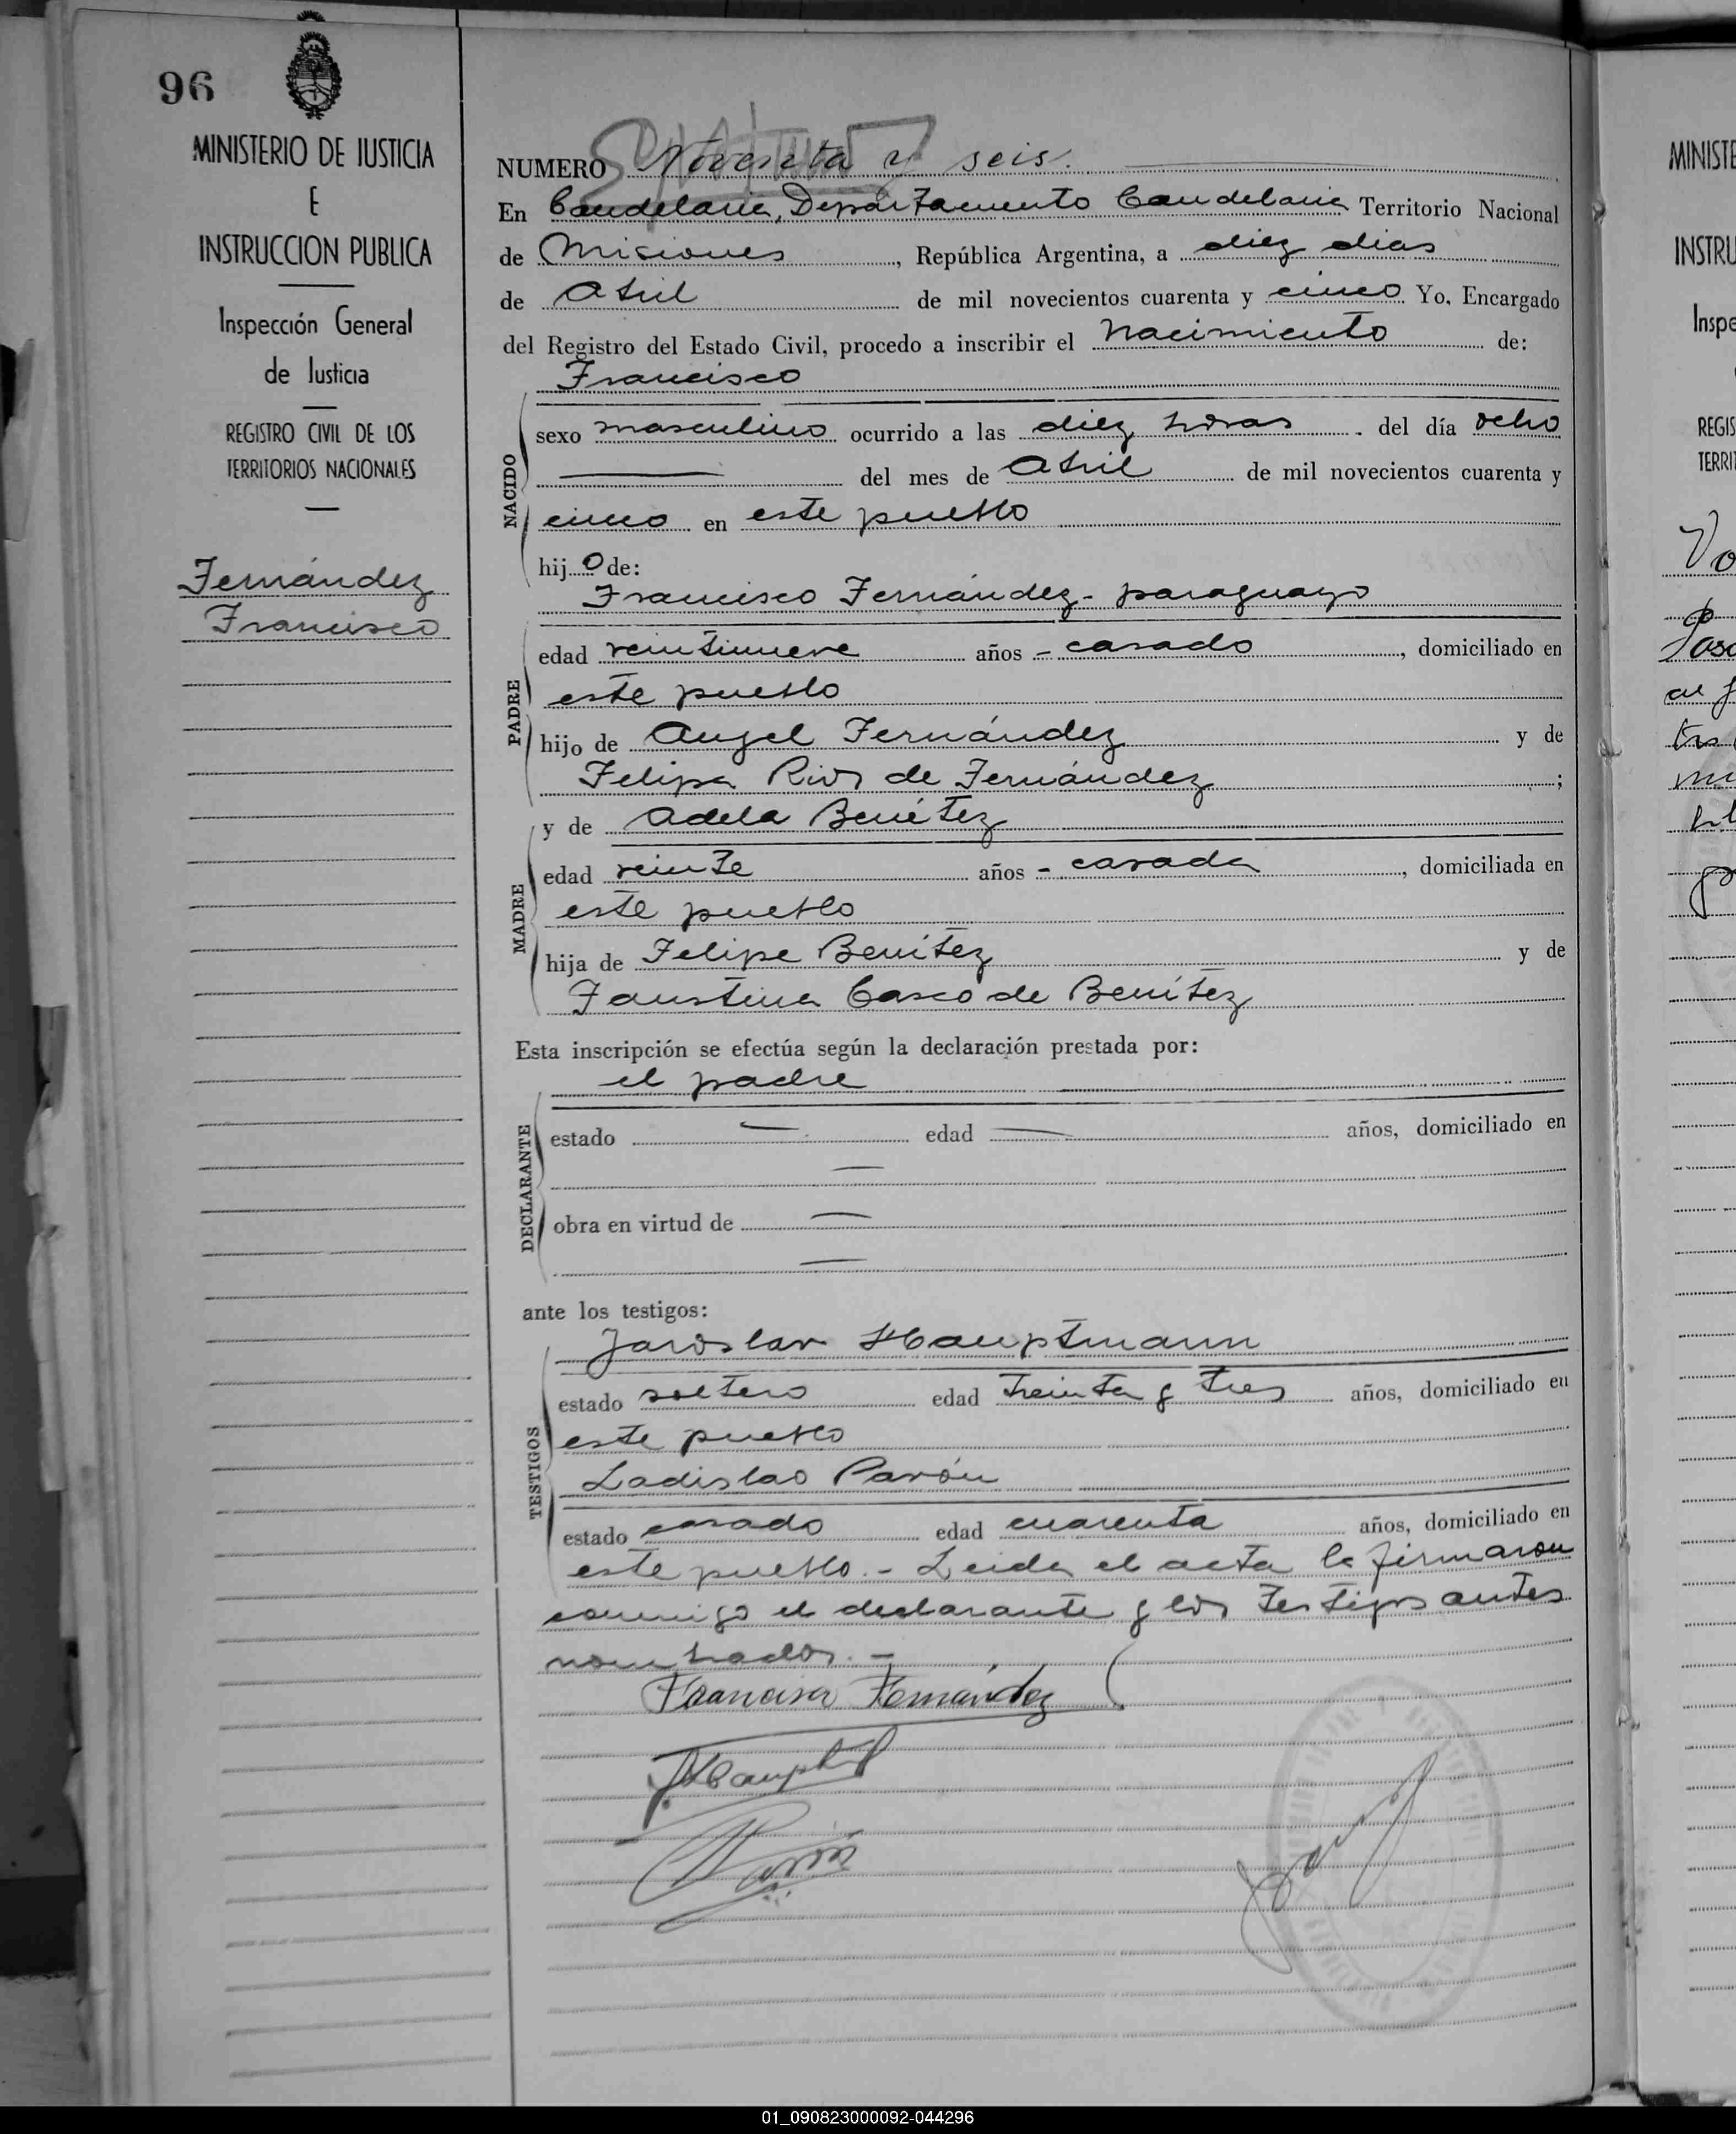 96
MINISTERIO DE JUSTICIA
E
INSTRUCCION PUBLICA
Inspección General
de Justicia
REGISTRO CIVIL DE LOS
TERRITORIOS NACIONALES
Fernández
Francisco
NUMERO Noventa y seis.
En Candelaria, Departamento Candelaria Territorio Nacional
de Misiones, República Argentina, a diez dias
de Abril de mil novecientos cuarenta y cinco Yo, Encargado
del Registro del Estado Civil, procedo a inscribir el nacimiento de:
Francisco
NACIDO
sexo masculino ocurrido a las diez horas. del día ocho
— del mes de Abril de mil novecientos cuarenta y
cinco en este pueblo
hijo de:
Francisco Fernández - paraguayo
PADRE
edad veintinueve años - casado, domiciliado en
este pueblo
hijo de Angel Fernández y de
Felipa Rios de Fernández;
MADRE
y de Adela Benítez
edad veinte años - casada, domiciliada en
este pueblo
hija de Felipe Benítez y de
Faustina Casco de Benítez
Esta inscripción se efectúa según la declaración prestada por:
el padre
DECLARANTE
estado — edad — años, domiciliado en
—
obra en virtud de —
—
ante los testigos:
TESTIGOS
Jaroslav Hauptmann
estado soltero edad treinta y tres años, domiciliado en
este pueblo
Ladislao Pavón
estado casado edad cuarenta años, domiciliado en
este pueblo. - Leida el acta la firmaron
conmigo el declarante y los testigos antes
nombrados. -
Francisco Fernández
MINISTE
INSTRU
Inspe
REGIS
TERRI
01_090823000092-044296